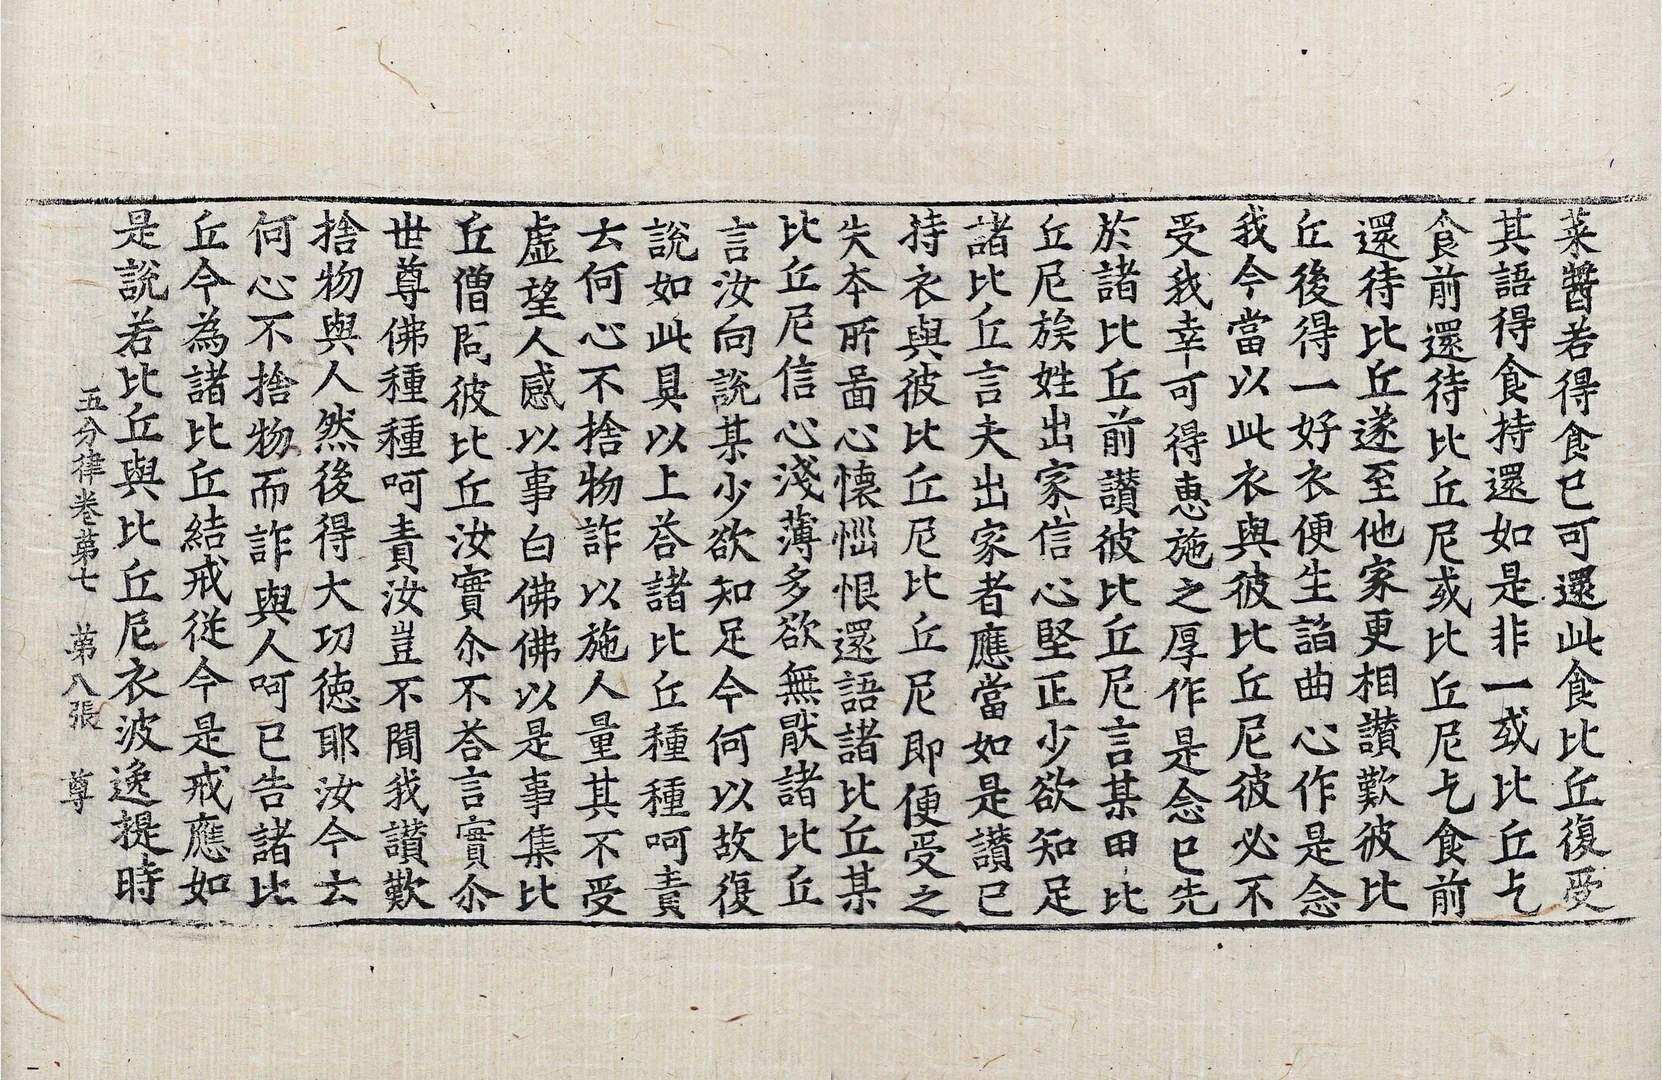 菜醬若得食已可還此食比丘復受
其語得食持還如是非一或比丘乞
食前還待比丘尼或比丘尼乞食前
還待比丘遂至他家更相讃歎彼比
丘後得一好衣便生諂曲心作是念
我今當以此衣與彼比丘尼彼必不
受我幸可得恵施之厚作是念已先
於諸比丘前讃彼比丘尼言某甲比
丘尼族姓出家信心堅正少欲知足
諸比丘言夫出家者應當如是讃已
持衣與彼比丘尼比丘尼即便受之
失夲所啚心懐惱恨還語諸比丘某
比丘尼信心淺薄多欲無猒諸比丘
言汝向說某少欲知足今何以故復
說如此具以上荅諸比丘種種呵責
云何心不捨物詐以施人量其不受
虛望人感以事白佛佛以是事集比
丘僧問彼比丘汝實尒不荅言實尒
世尊佛種種呵責汝豈不聞我讃歎
捨物與人然後得大功徳耶汝今云
何心不捨物而詐與人呵已告諸比
丘今為諸比丘結戒従今是戒應如
是說若比丘與比丘尼衣波逸提時
五分律巻苐七 苐八張 尊